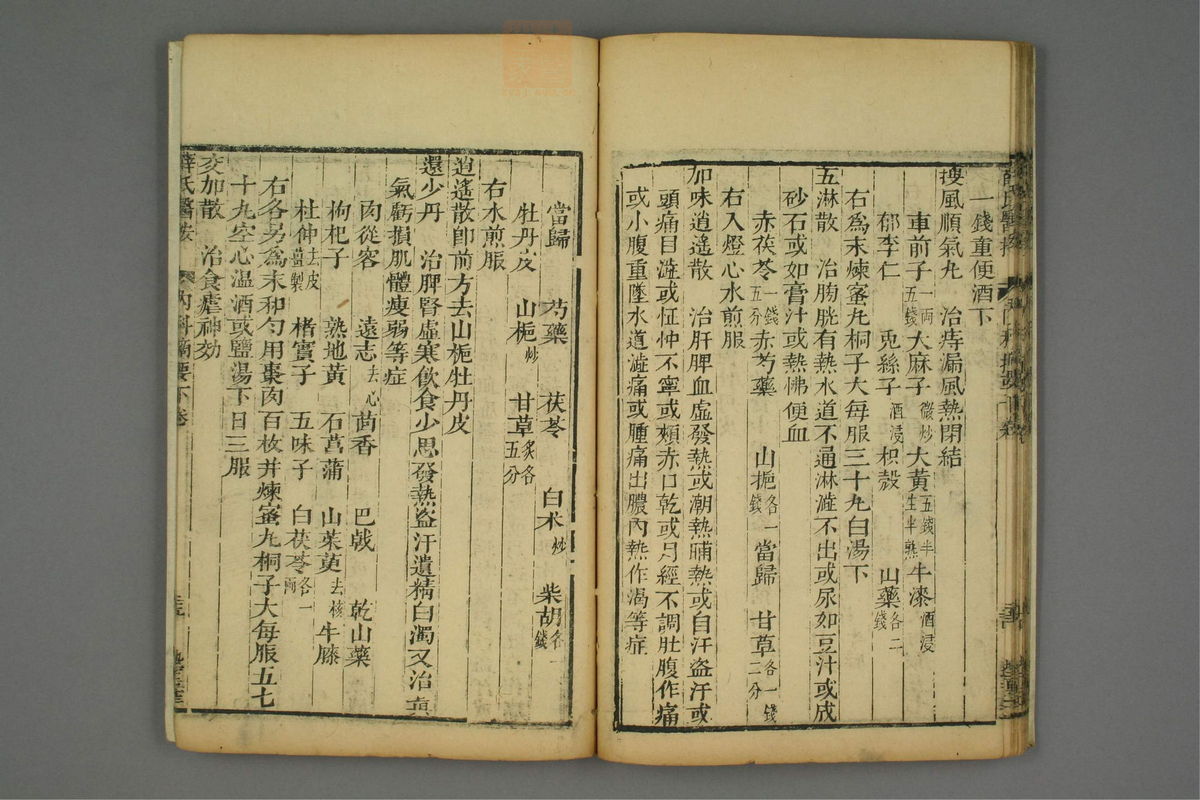 一錢重便酒下
搜風順氣丸　治痔漏風熱閉結
車前子一兩五錢　大麻子微炒　大黃五錢半生半熟　牛漆酒浸
郁李仁　兎絲子酒浸　枳殼　山藥各二錢
右為末煉蜜丸桐子大每服三十丸白湯下
五淋散　治膀胱有熱水道不通淋澁不出或尿如豆汁或成
砂石或如膏汁或熱怫便血
赤茯苓一錢五分　赤芍藥　山梔各一錢　當歸　甘草各一錢二分
右入燈心水煎服
加味逍遙散　治肝脾血虛發熱或潮熱晡熱或自汗盜汗或
頭痛目澁或怔忡不寧或頰赤口乾或月經不調肚腹作痛
或小腹重墜水道澁痛或腫痛出膿內熱作渴等症
當歸　芍藥　茯苓　白术炒　柴胡各一錢
牡丹皮　山梔炒　甘草炙各五分
右水煎服
逍遙散卽前方去山梔牡丹皮
還少丹　治脾腎虛寒飲食少思發熱盜汗遺精白濁又治眞
氣虧損肌體瘦弱等症
肉從容　遠志去心　茴香　巴戟　乾山藥
枸杞子　熟地黃　石菖蒲　山茱萸去核　牛膝
杜仲去皮薑製　楮實子　五味子　白茯苓各一兩
右各另為末和勻用棗肉百枚并煉蜜丸桐子大每服五七
十丸空心温酒或鹽湯下日三服
交加散　治食瘧神効
薛氏醫按　內科摘要下卷